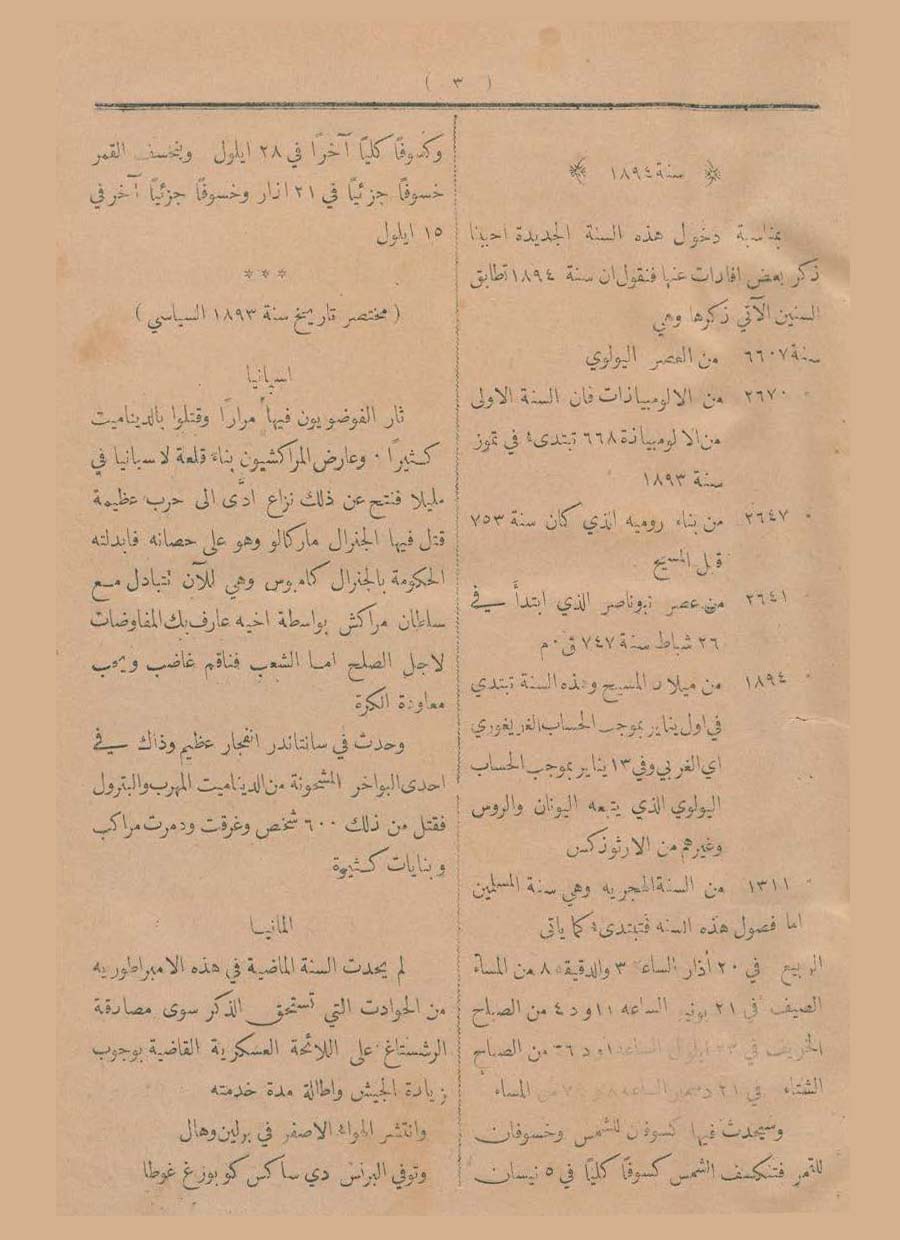 ( ٣ )
سنة ١٨٩٤
بمناسبة دخول هذه السنة الجديدة احببنا
ذكر بعض افادات عنها فنقول ان سنة ١٨٩٤ تطابق
السنين الآتي ذكرها وهي
سنة ٦٦٠٧ من العصر اليولوي
" ٢٦٧٠ من الالومبياذات فان السنة الاولى
من الالومبياذة ٦٦٨ تبتدىء في تموز
سنة ١٨٩٣
" ٢٦٤٧ من بناء روميه الذي كان سنة ٧٥٣
قبل المسيح
" ٢٦٤١ من عصر نبوناصر الذي ابتدأ في
٢٦ شباط سنة ٧٤٧ ق٠م
" ١٨٩٤ من ميلاد المسيح وهذه السنة تبتدي
في اول يناير بموجب الحساب الغريغوري
اي الغربي وفي ١٣ يناير بموجب الحساب
اليولوي الذي يتبعه اليونان والروس
وغيرهم من الارثوذكس
" ١٣١١ من السنة الهجريه وهي سنة المسلمين
اما فصول هذه السنه فتبتدىء كما ياتي
الربيع في ٢٠ أذار الساعه ٣ والدقيقه ٨ من المساء
الصيف في ٢١ يونيو الساعه ١١ و د ٤ من الصباح
الخريف في ٢٣ ايلول الساعه ١ و د ٢٦ من الصباح
الشتاء في ٢١ دسمبر الساعه ٨ المساء
وسيحدث فيها كسوفان للشمس وخسوفان
للقمر فتنكسف الشمس كسوفًا كليًا في ٥ نيسان
وكسوفًا كليًا آخرًا في ٢٨ ايلول وينخسف القمر
خسوفًا جزئيًا في ٢١ اذار وخسوفًا جزئيًا آخر في
١٥ ايلول
* * *
( مختصر تاريخ سنة ١٨٩٣ السياسي )
اسبانيا
ثار الفوضويون فيها مرارًا وقتلوا بالديناميت
كثيرًا ٠ وعارض المراكشيون بناء قلعة لاسبانيا في
مليلا فنتج عن ذلك نزاع ادَّى الى حرب عظيمة
قتل فيها الجنرال ماركالو وهو على حصانه فابدلته
الحكومة بالجنرال كامبوس وهي للآن تتبادل مع
سلطان مراكش بواسطة اخيه عارف بك المفاوضات
لاجل الصلح اما الشعب فناقم غاضب ويحب
معاودة الكرة
وحدث في سانتاندر انفجار عظيم وذاك في
احدى البواخر المشحونة من الديناميت المهرب والبترول
فقتل من ذلك ٦٠٠ شخص وغرقت ودمرت مراكب
وبنايات كثيرة
المانيا
لم يحدث السنة الماضية في هذه الامبراطوريه
من الحوادث التي تستحق الذكر سوى مصادقة
الرشستاغ على اللائحة العسكرية القاضية بوجوب
زيادة الجيش واطالة مدة خدمته
وانتشر الهواء الاصفر في برلين وهال
وتوفي البرنس دي ساكس كوبورغ غوطا